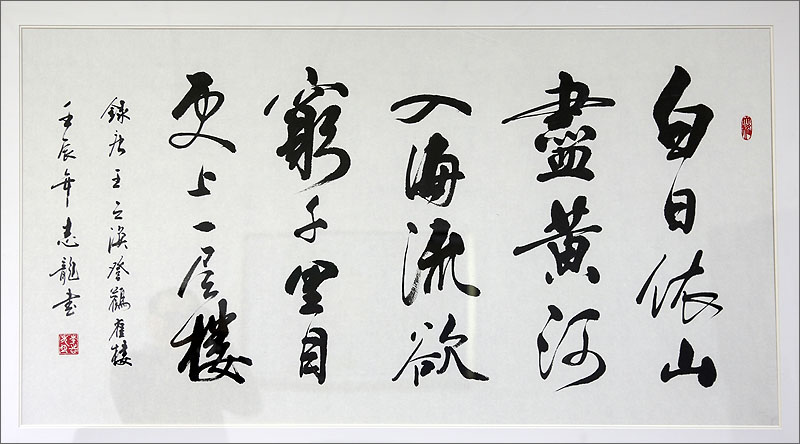 白日依山
盡黄河
入海流欲
窮千里目
更上一层樓
録唐王之渙登鸛雀樓
壬辰年志龍书